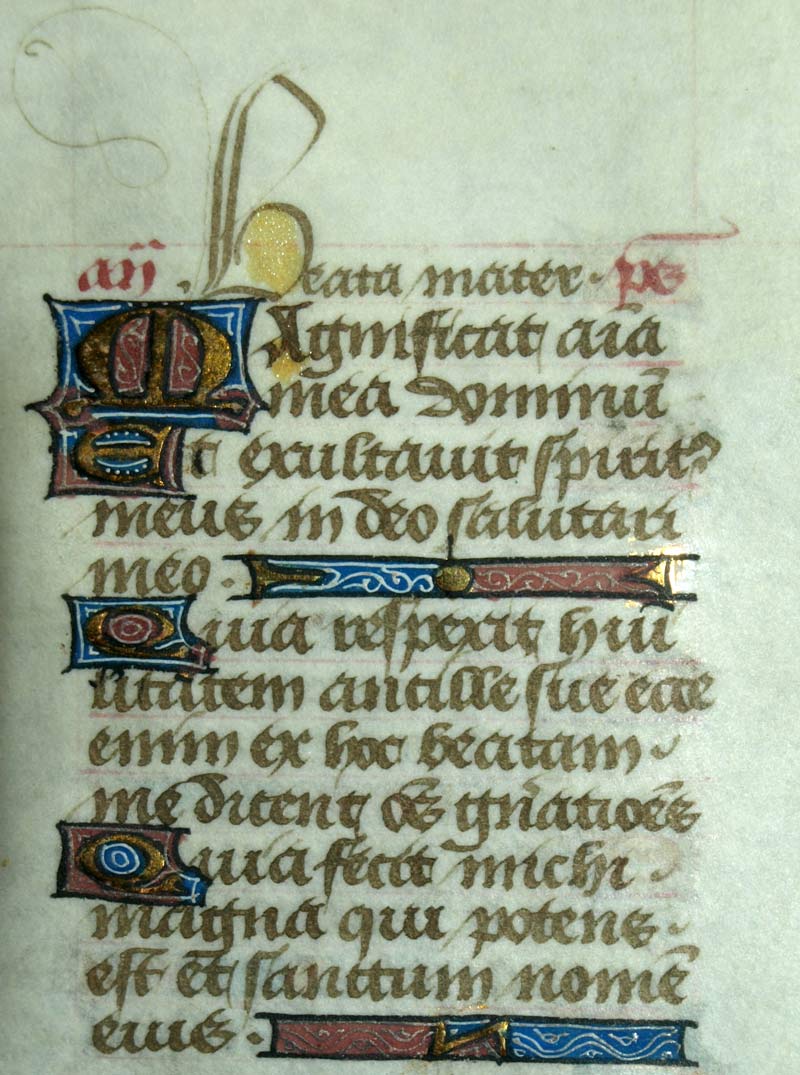 añ. Beata mater. ps
MAgnificat aīa
mea dominū
Et exultauit spirit⁹
meus in deo salutari
meo.
Quia respexit hui
litatem ancille sue ecce
enim ex hoc beatam
me dicent oēs gñatioēs
Quia fecit michi
magna qui potens
est et sanctum nomē
eius.